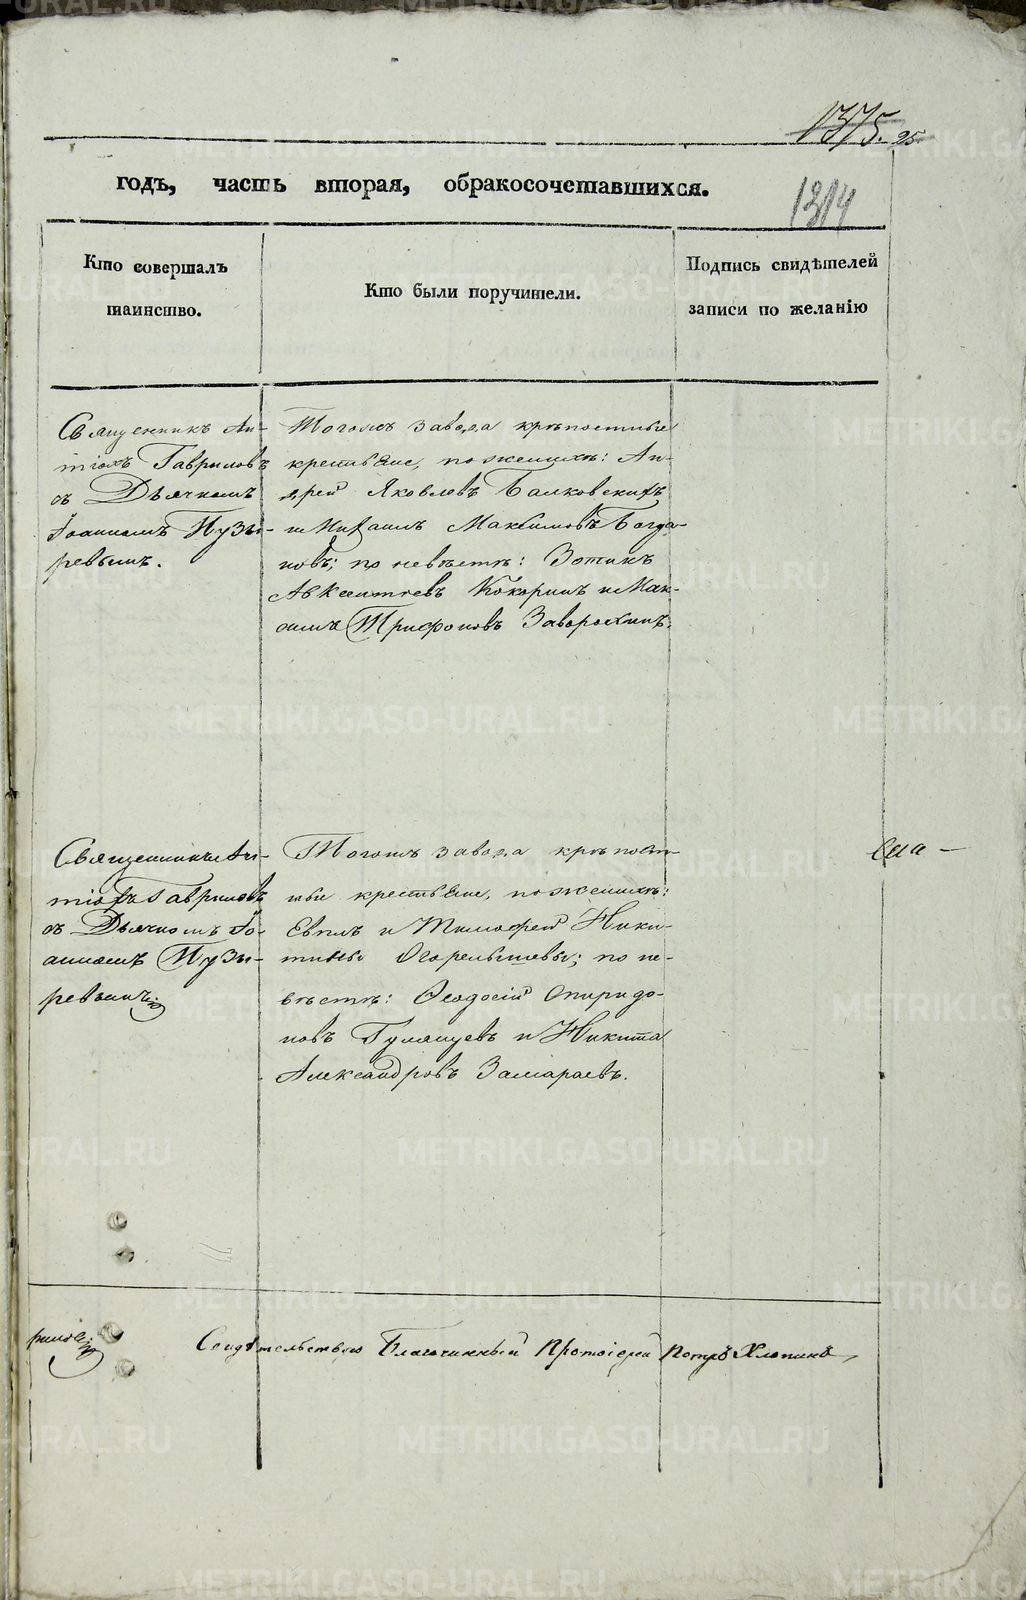 1375. 25
годъ, часть вторая, обракосочетавшихся.
1314
Кто совершалъ
таинство.
Кто были поручители.
Подпись свидѣтелей
записи по желанію
Священникъ Ан-
тіохъ Гавриловъ
съ Дьячкомъ
Іоанномъ Пузы-
ревымъ.
Тогожъ завода крѣпостные
крестьяне, по женихѣ: Ан-
дрей Яковлевъ Балковскихъ
и Михаилъ Максимовъ Богда-
новъ; по невѣстѣ: Зотикъ
Авксентіевъ Кокоринъ и Мак-
симъ Трифоновъ Заворохинъ.
Священникъ Ан-
тіохъ Гавриловъ
съ Дьячкомъ Іо-
анномъ Пузы-
ревымъ.
Тогожъ завода крѣпост-
ные крестьяне, по женихѣ:
Евплъ и Тимофей Ники-
тины Огорелышевы; по не-
вѣстѣ: Ѳеодосій Спиридо-
новъ Гуляцевъ и Никита
Александровъ Замараевъ.
Свидѣтельствую Благочинный Протоіерей Петръ Хлопинъ
METRIKI.GASO-URAL.RU